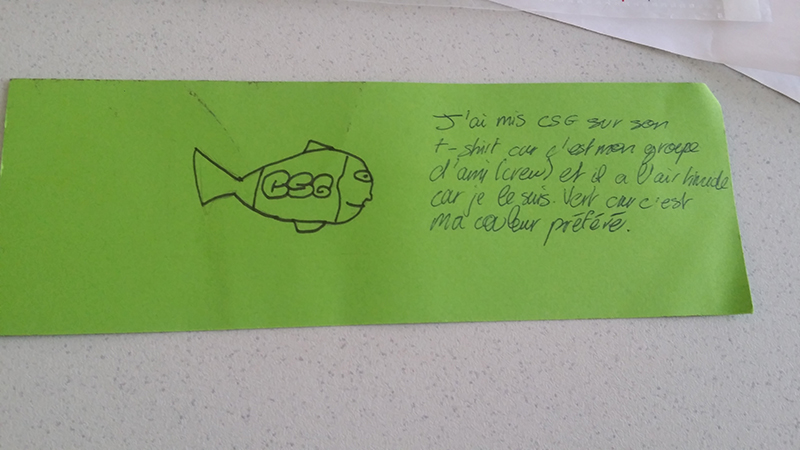 CSG
J'ai mis CSG sur son
t-shirt car c'est mon groupe
d'ami (crew) et il a l'air timide
car je le suis. Vert car c'est
ma couleur préféré.